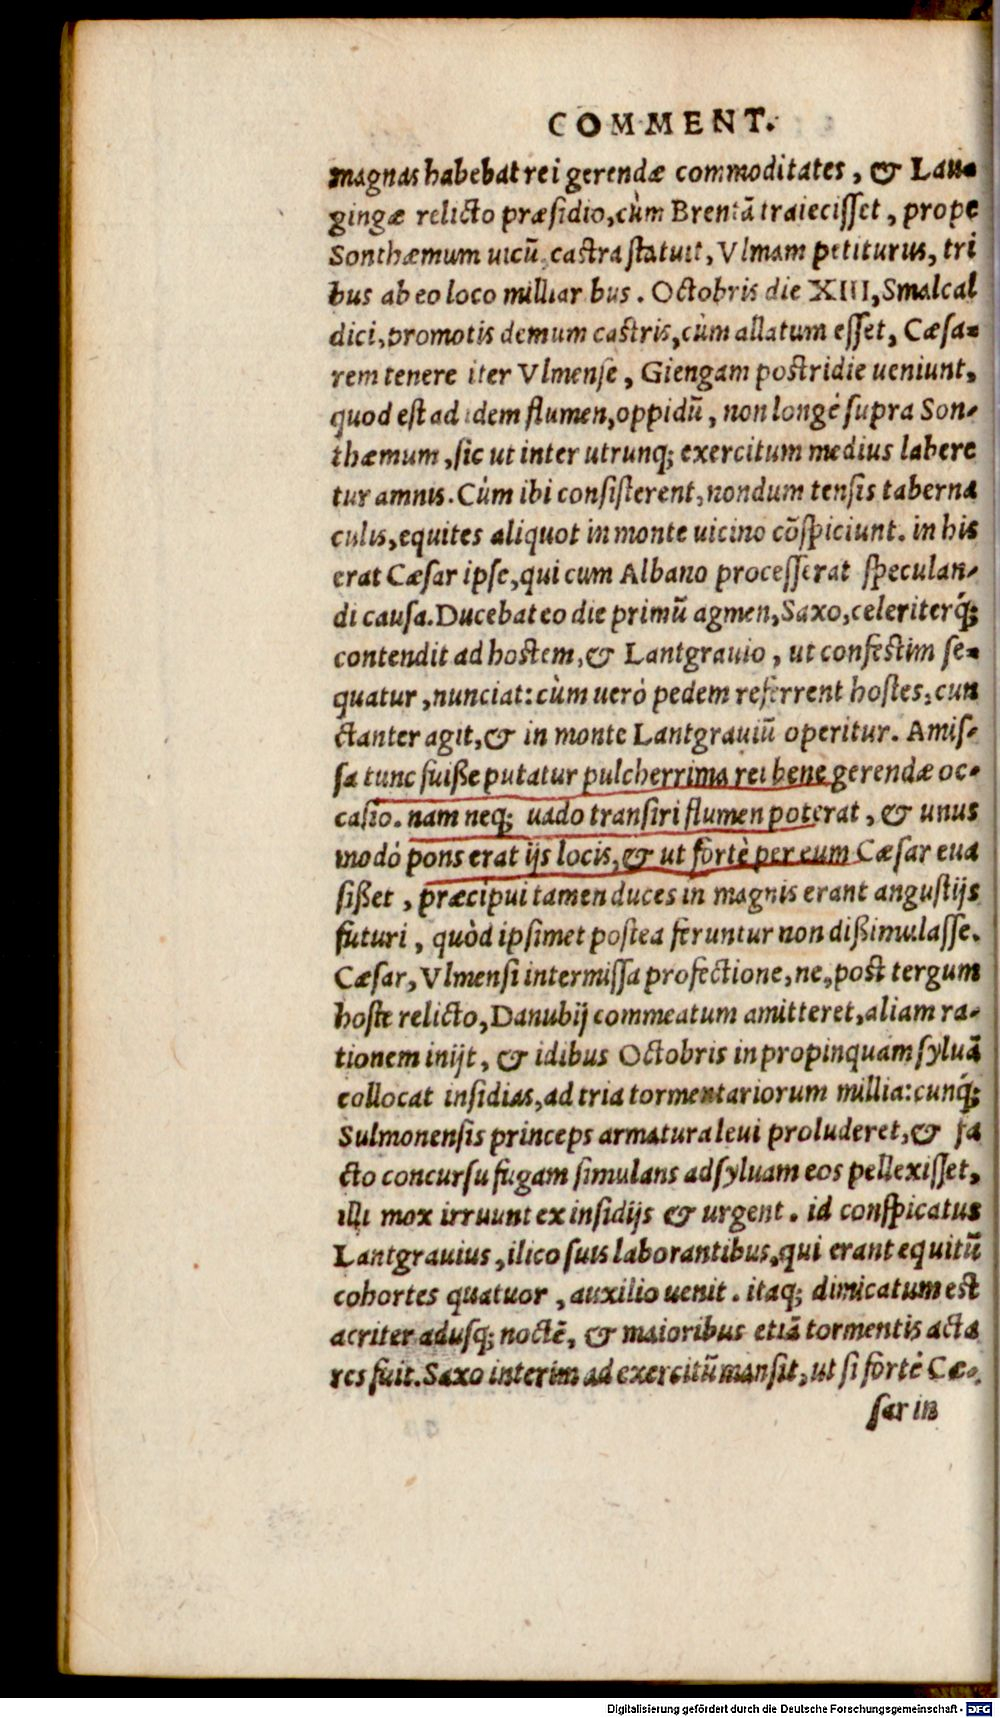 COMMENT.
magnas habebat rei gerendæ commoditates, & Lau-
gingæ relicto præsidio, cùm Brentã traiecisset, prope
Sonthæmum uicũ castra statuit, Vlmam petiturus, tri
bus ab eo loco milliar bus. Octobris die XIII, Smalcal
dici, promotis demum castris, cùm allatum esset, Cæsa-
rem tenere iter Vlmense, Giengam postridie ueniunt,
quod est ad idem flumen, oppidũ, non longè supra Son-
thæmum, sic ut inter utrunq; exercitum medius labere
tur amnis. Cùm ibi consisterent, nondum tensis taberna
culis, equites aliquot in monte uicino cõspiciunt. in his
erat Cæsar ipse, qui cum Albano processerat speculan-
di causa. Ducebat eo die primũ agmen, Saxo, celeriterq́;
contendit ad hostem, & Lantgrauio, ut confestim se-
quatur, nunciat: cùm uerò pedem referrent hostes, cun
ctanter agit, & in monte Lantgrauiũ operitur. Amis-
sa tunc fuiße putatur pulcherrima rei bene gerendæ oc-
casio. nam neq; uado transiri flumen poterat, & unus
modò pons erat ijs locis, & ut fortè per eum Cæsar eua
sißet, præcipui tamen duces in magnis erant angustijs
futuri, quòd ipsimet postea feruntur non dißimulasse.
Cæsar, Vlmensi intermissa profectione, ne, post tergum
hoste relicto, Danubij commeatum amitteret, aliam ra-
tionem inijt, & idibus Octobris in propinquam syluã
collocat insidias, ad tria tormentariorum millia: cunq́;
Sulmonensis princeps armatura leui proluderet, & fa
cto concursu fugam simulans ad syluam eos pellexisset,
illi mox irruunt ex insidijs & urgent. id conspicatus
Lantgrauius, ilico suis laborantibus, qui erant equitũ
cohortes quatuor, auxilio uenit. itaq; dimicatum est
acriter adusq; noctẽ, & maioribus etiã tormentis acta
res fuit. Saxo interim ad exercitũ mansit, ut si fortè Cæ-
sar in
Digitalisierung gefördert durch die Deutsche Forschungsgemeinschaft - DFG